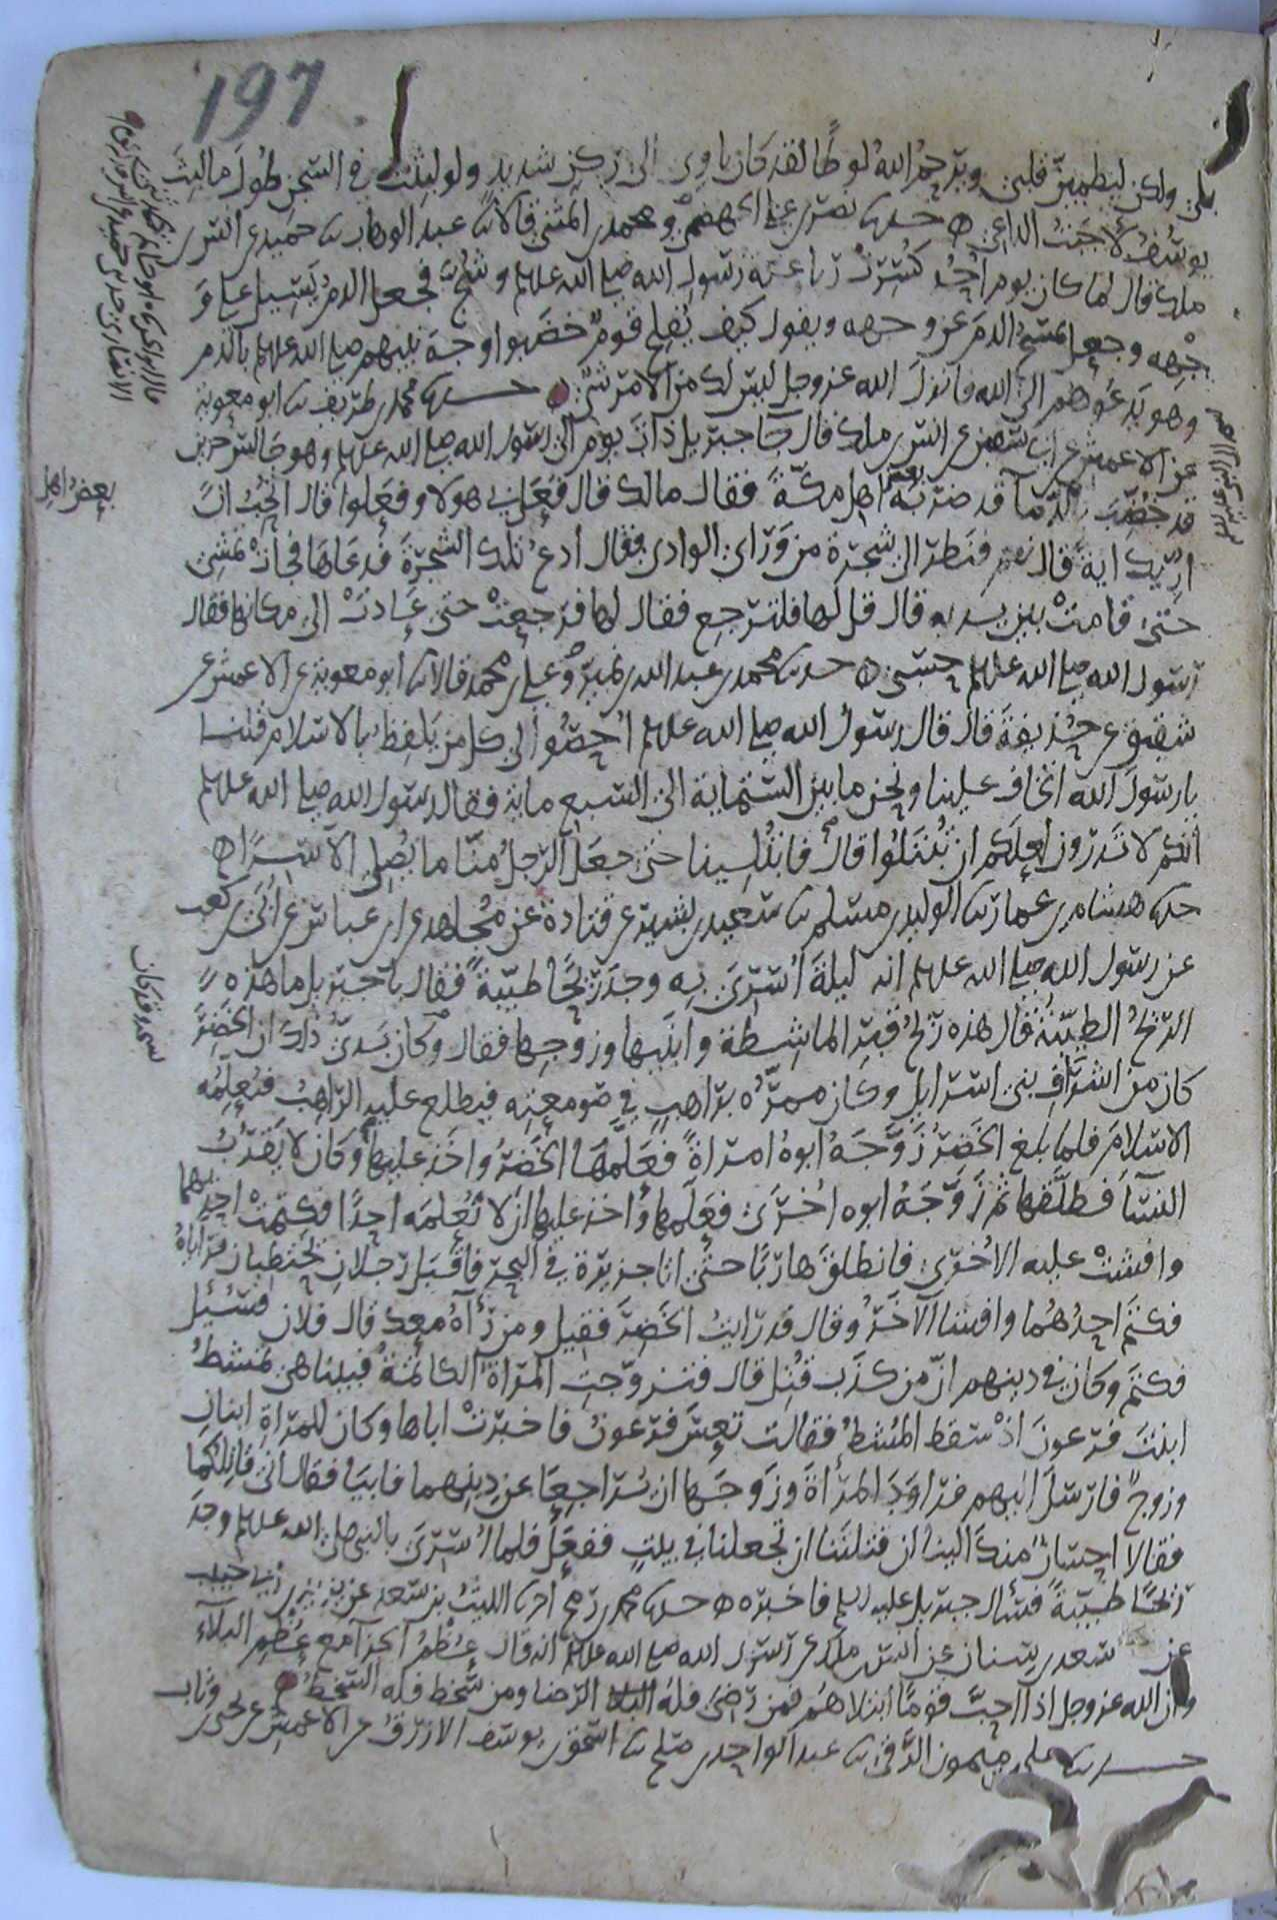 197
بلى ولكن ليطمين قلبي ويرحم الله لوطا لقد كان ياوي الى ركن شديد ولو لبثت في السجن طول ما لبث
يوسف لاجبت الداعي حدثنا نصر بن علي الجهضمي ومحمد بن المثنى قالا ثنا عبد الوهاب ثنا حميد عن انس بن
ملك قال لما كان يوم احد كسرت رباعية رسول الله صلى الله عليه وسلم وشج فجعل الدم يسيل على و
جهه وجعل يمسح الدم عن وجهه ويقول كيف يفلح قوم خضبوا وجه نبيهم صلى الله عليه وسلم بالدم
وهو يدعوهم الى الله فانزل الله عز وجل ليس لك من الامر شيء حدثنا محمد بن طريف ثنا ابو معوية
عن الاعمش عن ابي سفين عن انس بن ملك قال جا جبريل ذات يوم الى رسول الله صلى الله عليه وسلم وهو جالس حزين
قد خضب بالدما قد ضربه اهل مكة فقال مالك قال فعل بي هولا وفعلوا قال اتحب ان
اريك اية قال نعم فنظر الى شجرة من وراي الوادي فقال ادع تلك الشجرة فدعاها فجات تمشي
حتى قامت بين يديه قال قل لها فلترجع فقال لها فرجعت حتى عادت الى مكانها فقال
رسول الله صلى الله عليه وسلم حسبي حدثنا محمد بن عبد الله بن نمير وعلي بن محمد قالا ثنا ابو معوية عن الاعمش عن
شقيق عن حذيفة قال قال رسول الله صلى الله عليه وسلم احصوا لي كل من يلفظ بالاسلام قلنا
يا رسول الله اتخاف علينا ونحن ما بين الستماية الى السبع ماية فقال رسول الله صلى الله عليه وسلم
انكم لا تدرون لعلكم ان تبتلوا قال فابتلينا حتى جعل الرجل منا ما يصلي الا سرا
حدثنا هشام بن عمار ثنا الوليد بن مسلم ثنا سعيد بن بشير عن قتادة عن مجاهد عن ابن عباس عن ابي بن كعب
عن رسول الله صلى الله عليه وسلم انه ليلة اسري به وجد ريحا طيبة فقال يا جبريل ما هذه
الريح الطيبة قال هذه ريح قبر الماشطة وابنيها وزوجها فقال وكان بدي ذلك ان الخضر
كان من اشراف بني اسرايل وكان ممره براهب في صومعته فيطلع عليه الراهب فيعلمه
الاسلام فلما بلغ الخضر زوجه ابوه امراة فعلمها الخضر واخذ عليها وكان لا يقرب
النسا فطلقها ثم زوجه ابوه اخرى فعلمها واخذ عليها ان لا تعلمه احدا فكتمت احديهما
وافشت عليه الاخرى فانطلق هاربا حتى اتا جزيرة في البحر فاقبل رجلان يحتطبان فراياه
فكتم احدهما وافشا الاخر وقال قد رايت الخضر فقيل ومن رآه معك قال فلان فسئل
فكتم وكان في دينهم ان من كذب قتل قال فتزوجت المراة الكاتمة فبينا هي تمشط
ابنت فرعون اذ سقط المشط فقالت تعس فرعون فاخبرت اباها وكان للمراة ابنان
وزوج فارسل اليهم فراود المراة وزوجها ان يراجعا عن دينهما فابيا فقال اني قاتلكما
فقالا احسان منك الينا ان قتلتنا ان تجعلنا في بيت ففعل فلما اسري بالنبي صلى الله عليه وسلم وجد
ريحا طيبة فسال جبريل عليه السلم فاخبره حدثنا محمد بن رمح اخبرنا الليث بن سعد عن يزيد بن ابي حبيب
عن سعد بن سنان عن انس بن ملك عن رسول الله صلى الله عليه وسلم انه قال عظم الجزآ مع عظم البلآء
وان الله عز وجل اذا احب قوما ابتلاهم فمن رضي فله الرضا ومن سخط فله السخط
حدثنا علي بن ميمون الرقي ثنا عبد الواحد بن صلح ثنا اسحق بن يوسف الازرق عن الاعمش عن يحيى بن وثاب
بعض اهل